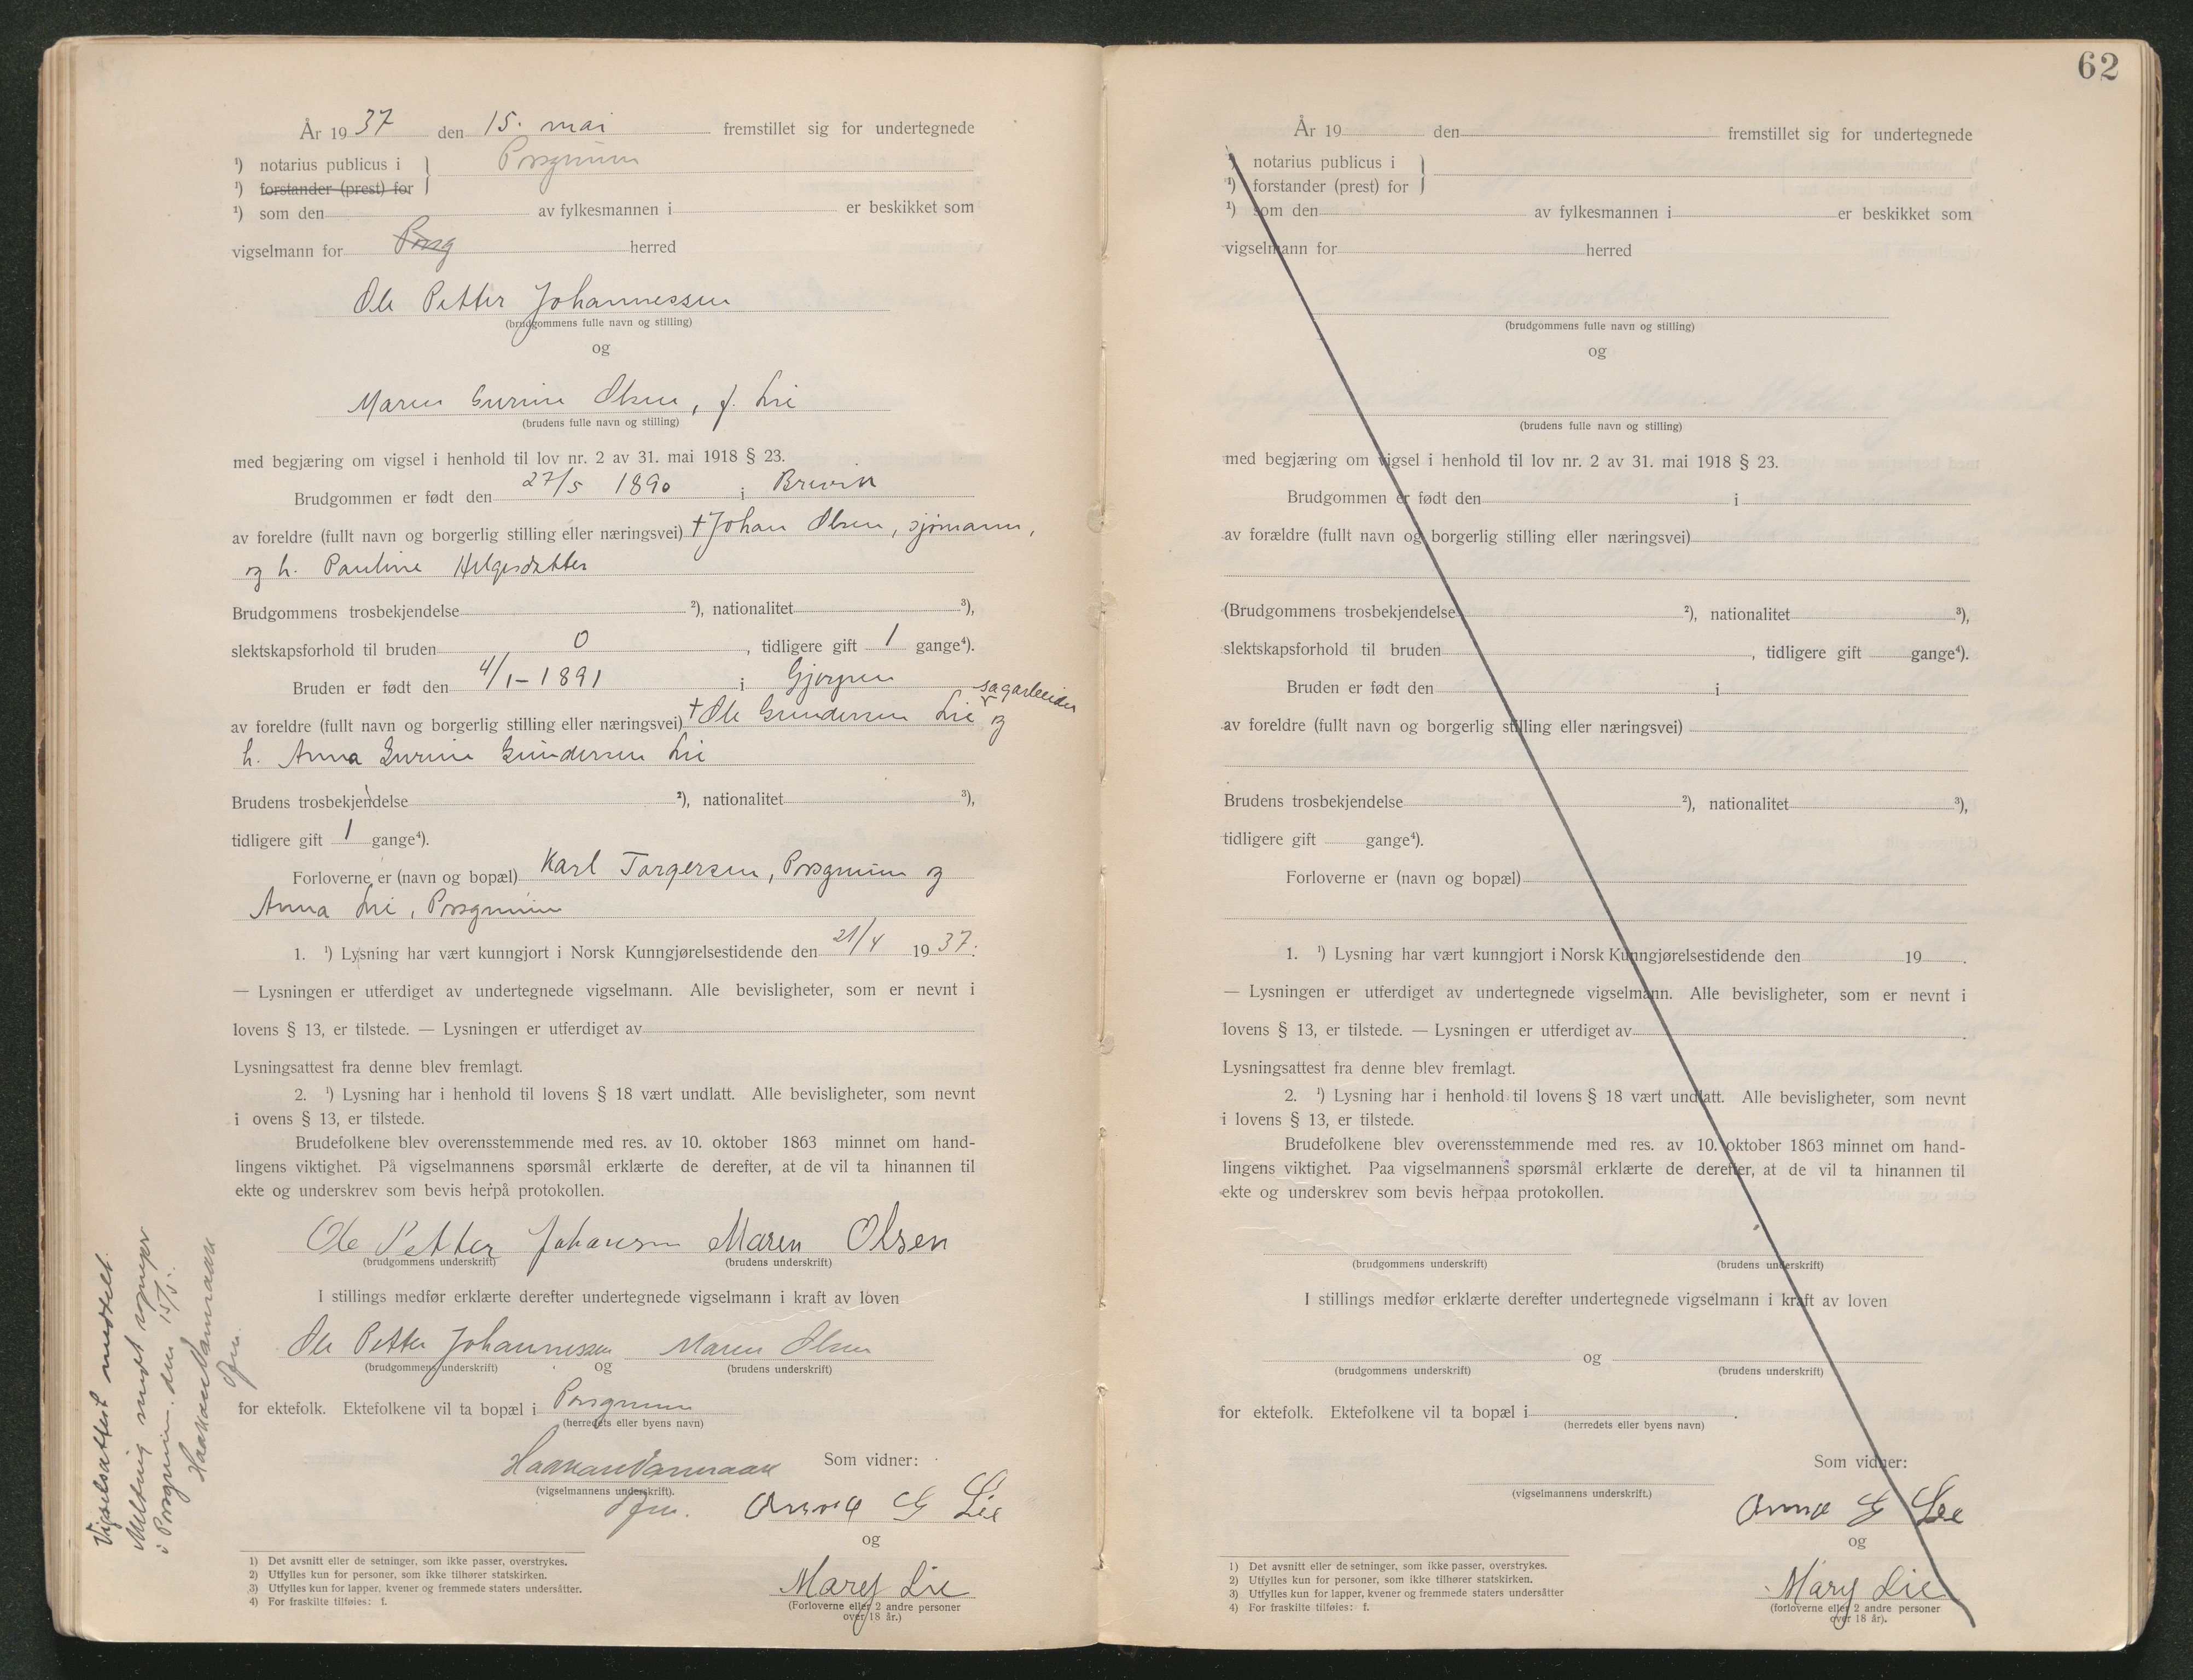 År 1937 den 15. mai fremstillet sig for undertegnede
¹) notarius publicus i } Porsgrunn
¹) forstander (prest) for
¹) som den av fylkesmannen i er beskikket som
vigselmann for Porsg herred
Ole Petter Johannessen
(brudgommens fulle navn og stilling)
og
Maren Gurine Olsen, f. Lie
(brudens fulle navn og stilling)
med begjæring om vigsel i henhold til lov nr. 2 av 31. mai 1918 § 23.
Brudgommen er født den 27/5 1890 i Brevik
av foreldre (fullt navn og borgerlig stilling eller næringsvei) † Johan Olsen, sjømann,
og h. Pauline Helgesdatter
Brudgommens trosbekjendelse ²), nationalitet ³),
slektskapsforhold til bruden 0, tidligere gift 1 gange⁴).
Bruden er født den 4/1 - 1891 i Gjerpen
sagarbeider
av foreldre (fullt navn og borgerlig stilling eller næringsvei) † Ole Gundersen Lie og
h. Anna Gurine Gundersen Lie
Brudens trosbekjendelse ²), nationalitet ³),
tidligere gift 1 gange⁴).
Forloverne er (navn og bopæl) Karl Torgersen, Porsgrunn og
Anna Lie, Porsgrunn
1. ¹) Lysning har vært kunngjort i Norsk Kunngjørelsestidende den 21/4 1937.
— Lysningen er utferdiget av undertegnede vigselmann. Alle bevisligheter, som er nevnt i
lovens § 13, er tilstede. — Lysningen er utferdiget av
Lysningsattest fra denne blev fremlagt.
2. ¹) Lysning har i henhold til lovens § 18 vært undlatt. Alle bevisligheter, som nevnt
i ovens § 13, er tilstede.
Brudefolkene blev overensstemmende med res. av 10. oktober 1863 minnet om hand-
lingens viktighet. På vigselmannens spørsmål erklærte de derefter, at de vil ta hinannen til
ekte og underskrev som bevis herpå protokollen.
Ole Petter Johansen Maren Olsen
(brudgommens underskrift) (brudens underskrift)
I stillings medfør erklærte derefter undertegnede vigselmann i kraft av loven
Ole Petter Johannessen og Maren Olsen
(brudgommens underskrift) (brudens underskrift)
for ektefolk. Ektefolkene vil ta bopæl i Porsgrunn
(herredets eller byens navn)
Som vidner:
(vigselmannens underskrift).
Anna G Lie
og
Mary Lie
(Forloverne eller 2 andre personer
over 18 år.)
1) Det avsnitt eller de setninger, som ikke passer, overstrykes.
2) Utfylles kun for personer, som ikke tilhører statskirken.
3) Utfylles kun for lapper, kvener og fremmede staters undersåtter.
4) For fraskilte tilføies: f.
Vigselsattest meddelt.
Melding sendt sogneprest
i Porsgrunn. den 15/5.
62
År 19 den fremstillet sig for undertegnede
¹) notarius publicus i }
¹) forstander (prest) for
¹) som den av fylkesmannen i er beskikket som
vigselmann for herred
(brudgommens fulle navn og stilling)
og
(brudens fulle navn og stilling)
med begjæring om vigsel i henhold til lov nr. 2 av 31. mai 1918 § 23.
Brudgommen er født den i
av forældre (fullt navn og borgerlig stilling eller næringsvei)
(Brudgommens trosbekjendelse ²), nationalitet ³),
slektskapsforhold til bruden , tidligere gift gange⁴).
Bruden er født den i
av foreldre (fullt navn og borgerlig stilling eller næringsvei)
Brudens trosbekjendelse ²), nationalitet ³),
tidligere gift gange⁴).
Forloverne er (navn og bopæl)
1. ¹) Lysning har vært kunngjort i Norsk Kunngjørelsestidende den 19 .
— Lysningen er utferdiget av undertegnede vigselmann. Alle bevisligheter, som er nevnt i
lovens § 13, er tilstede. — Lysningen er utferdiget av .
Lysningsattest fra denne blev fremlagt.
2. ¹) Lysning har i henhold til lovens § 18 vært undlatt. Alle bevisligheter, som nevnt
i lovens § 13, er tilstede.
Brudefolkene blev overensstemmende med res. av 10. oktober 1863 minnet om hand-
lingens viktighet. Paa vigselmannens spørsmål erklærte de derefter, at de vil ta hinannen til
ekte og underskrev som bevis herpaa protokollen.
(brudgommens underskrift) (brudens underskrift)
I stillings medfør erklærte derefter undertegnede vigselmann i kraft av loven
og
(brudgommens underskrift) (brudens underskrift)
for ektefolk. Ektefolkene vil ta bopæl i .
(herredets eller byens navn)
Som vidner:
(vigselmannens underskrift.)
Anna G Lie
og
Mary Lie
(forloverne eller 2 andre personer
over 18 år).
1) Det avsnitt eller de setninger, som ikke passer, overstrykes.
2) Utfylles kun for personer, som ikke tilhører statskirken.
3) Utfylles kun for lapper, kvener og fremmede staters undersåtter
4) For fraskilte tilføies: f.